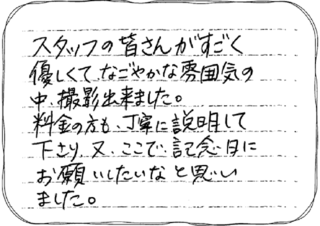 スタッフの皆さんがすごく
優しくて、なごやかな雰囲気の
中、撮影出来ました。
料金の方も、丁寧に説明して
下さり、又、ここで、記念日に
お願いしたいなと思い
ました。